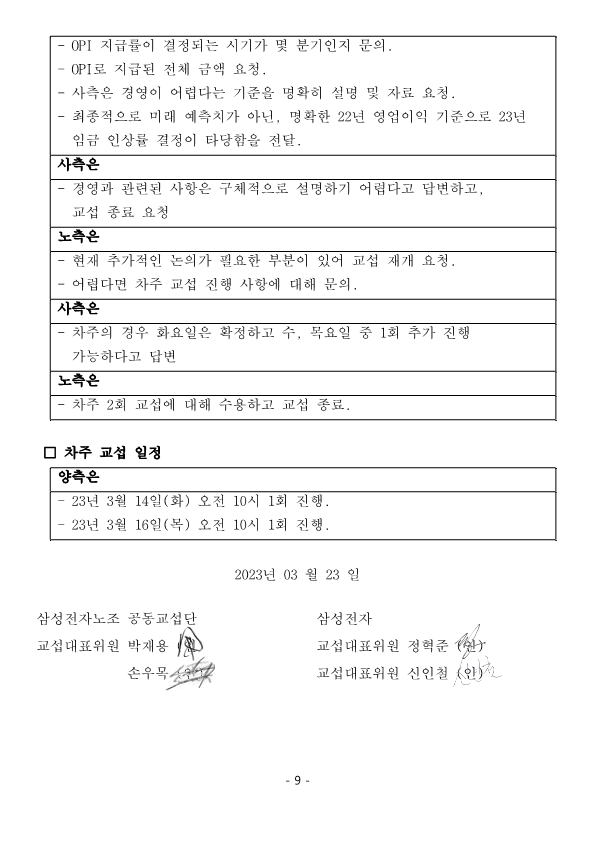 - OPI 지급률이 결정되는 시기가 몇 분기인지 문의.
- OPI로 지급된 전체 금액 요청.
- 사측은 경영이 어렵다는 기준을 명확히 설명 및 자료 요청.
- 최종적으로 미래 예측치가 아닌, 명확한 22년 영업이익 기준으로 23년
임금 인상률 결정이 타당함을 전달.
사측은
- 경영과 관련된 사항은 구체적으로 설명하기 어렵다고 답변하고,
교섭 종료 요청
노측은
- 현재 추가적인 논의가 필요한 부분이 있어 교섭 재개 요청.
- 어렵다면 차주 교섭 진행 사항에 대해 문의.
사측은
- 차주의 경우 화요일은 확정하고 수, 목요일 중 1회 추가 진행
가능하다고 답변
노측은
- 차주 2회 교섭에 대해 수용하고 교섭 종료.
□ 차주 교섭 일정
양측은
- 23년 3월 14일(화) 오전 10시 1회 진행.
- 23년 3월 16일(목) 오전 10시 1회 진행.
2023년 03 월 23 일
삼성전자노조 공동교섭단
교섭대표위원 박재용
손우목
삼성전자
교섭대표위원 정혁준 (인)
교섭대표위원 신인철 (인)
- 9 -